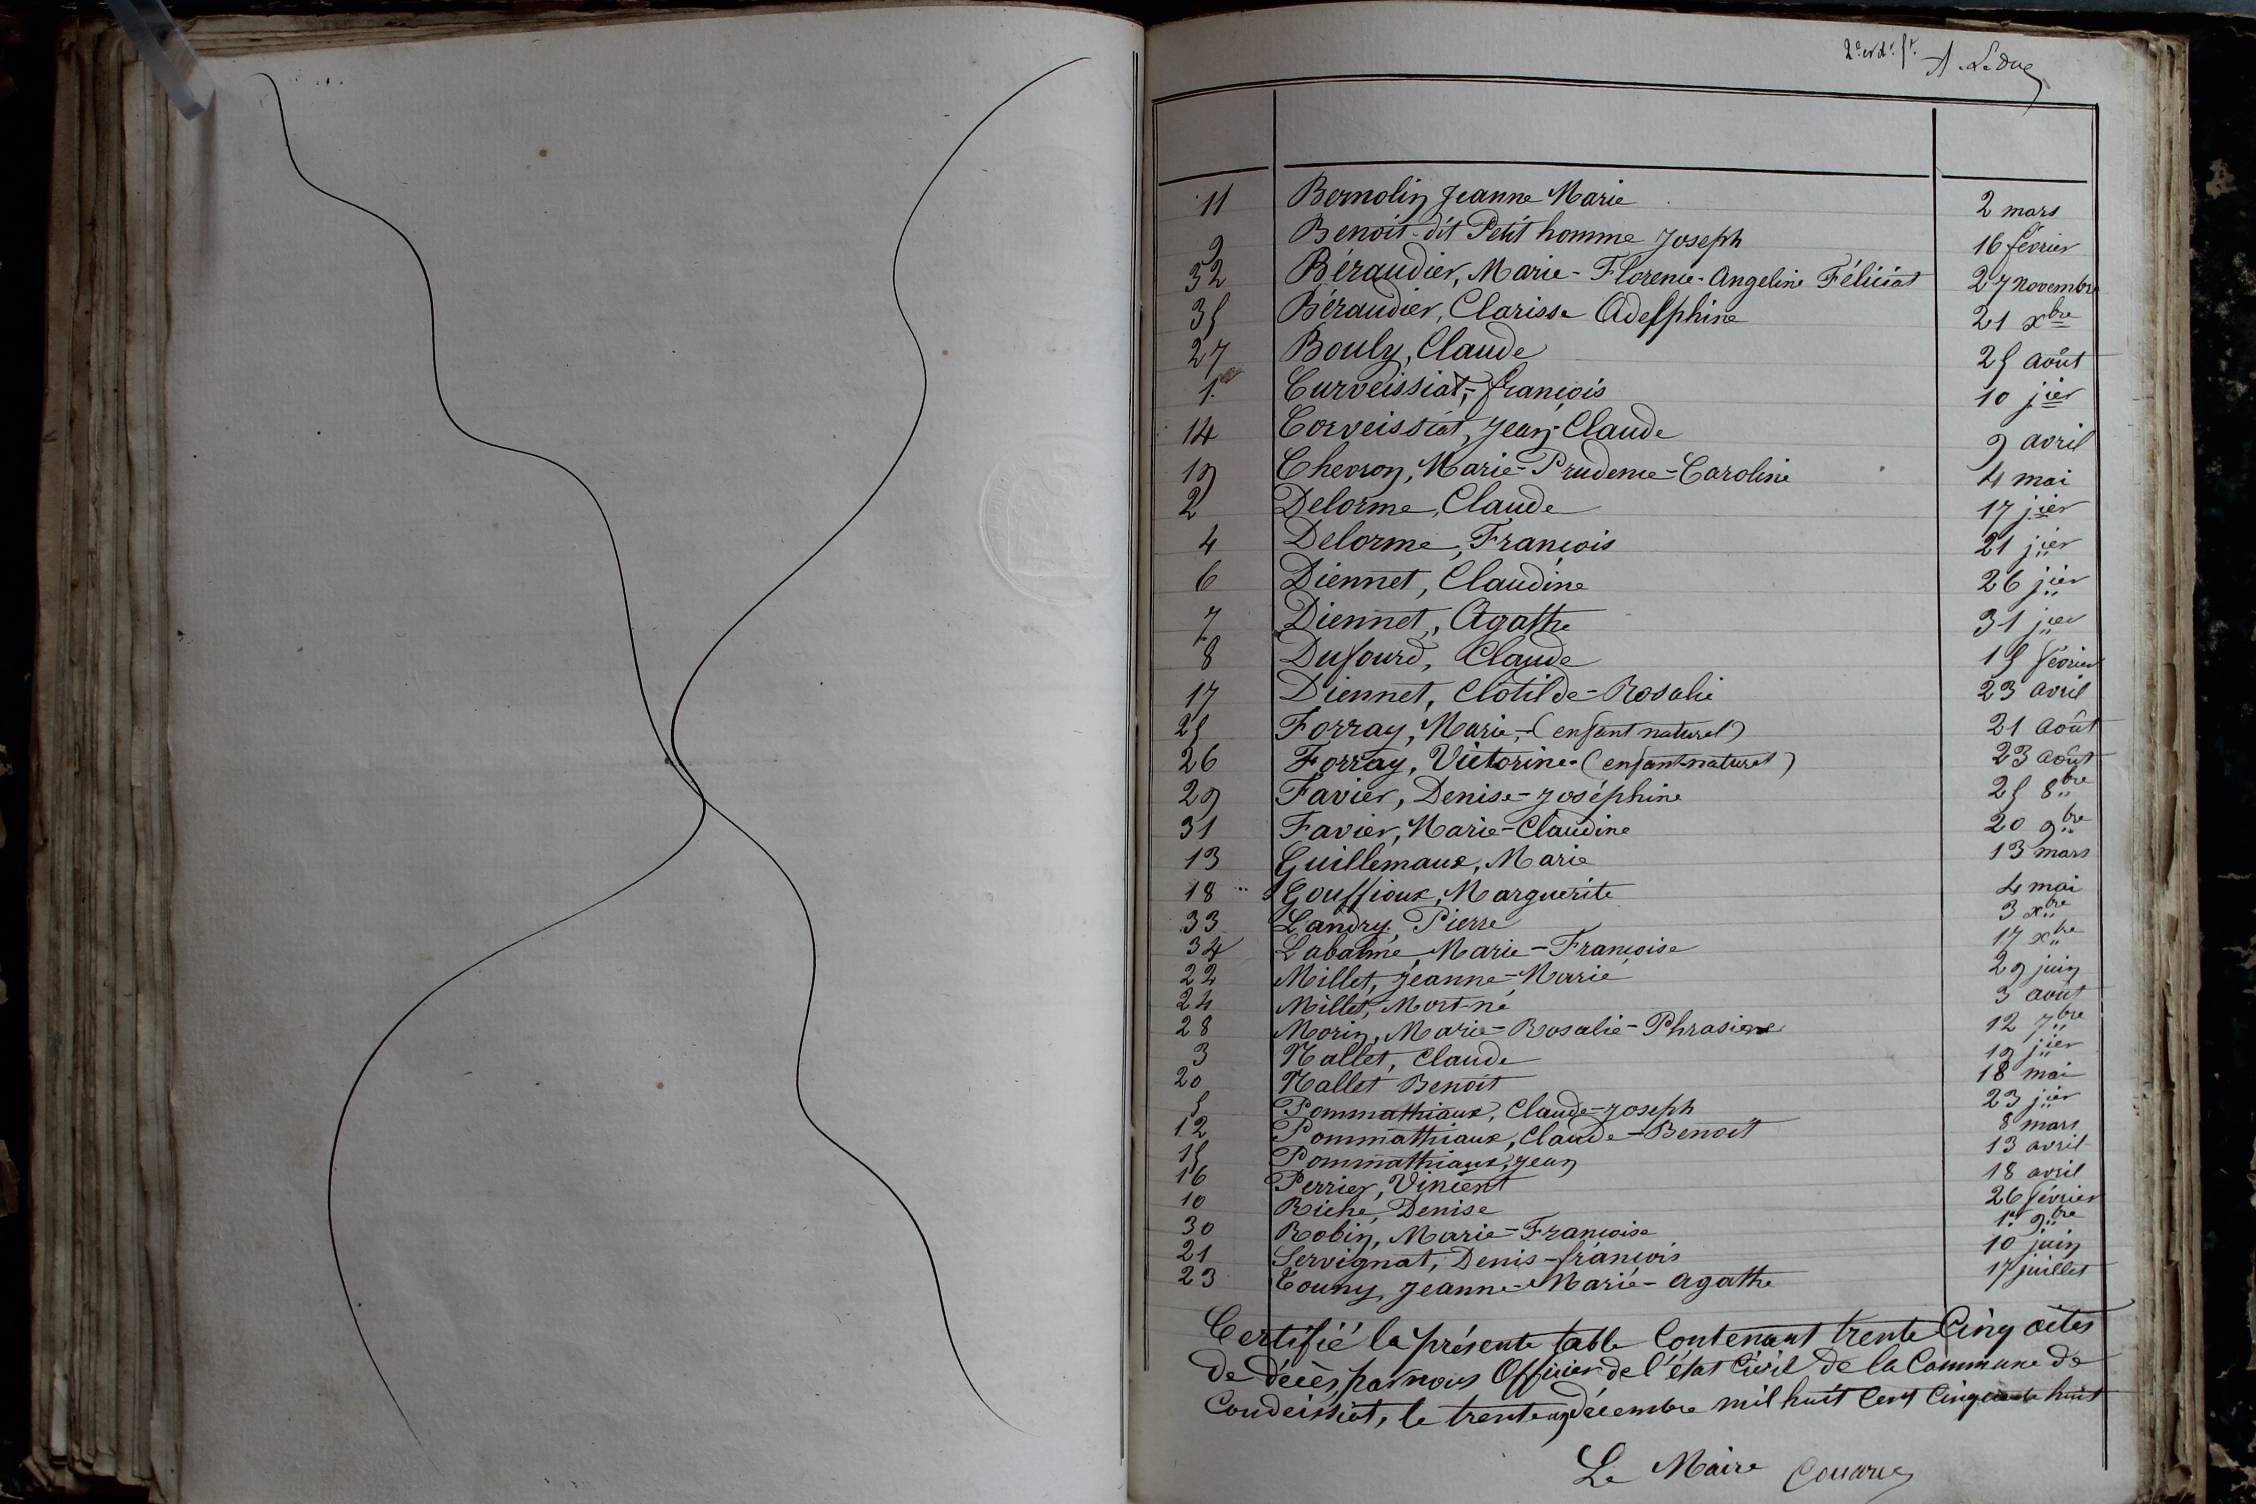 A. Leduc
11 Bernolin Jeanne Marie 2 mars
9 Benoit dit Petit homme Joseph 16 février
32 Béraudier, Marie-Florence-Angeline Féliciat 27 novembre
35 Béraudier, Clarisse Adelphine 21 xbre
27 Bouly, Claude 25 août
1er Curveissiat, françois 10 jier
14 Corveissiat, Jean-Claude 9 avril
19 Chevron, Marie-Prudence-Caroline 4 mai
2 Delorme, Claude 17 jier
4 Delorme, François 21 jier
6 Diennet, Claudine 26 jier
7 Diennet, Agathe 31 jier
8 Dufourd, Claude 15 février
17 Diennet, Clotilde-Rosalie 23 avril
25 Forray, Marie, (enfant naturel) 21 août
26 Forray, Victorine. (enfant naturel) 23 août
29 Favier, Denise-Joséphine 25 8bre
31 Favier, Marie-Claudine 20 9bre
13 Guillemaux, Marie 13 mars
18 Gouffioux, Marguerite 4 mai
33 Landry, Pierre 3 xbre
34 Labalme, Marie-Françoise 17 xbre
22 Millet, Jeanne-Marie 29 juin
24 Millet, Mort-né 3 août
28 Morin, Marie-Rosalie-Phrasie 12 7bre
3 Nallet, Claude 19 jier
20 Nallet Benoit 18 mai
5 Pommathiaux, Claude-Joseph 23 jier
12 Pommathiaux, Claude-Benoit 8 mars
15 Pommathiaux, Jean 13 avril
16 Perrier, Vincent 18 avril
10 Riche, Denise 26 février
30 Robin, Marie-Françoise 1er 9bre
21 Servignat, Denis-françois 10 juin
23 Touny, Jeanne-Marie-Agathe 17 juillet
Certifié la présente table Contenant trente Cinq actes
de décès, par nous Officier de l'état Civil de la Commune de
Condeissiat, le trente un décembre mil huit cent cinquante huit
Le Maire